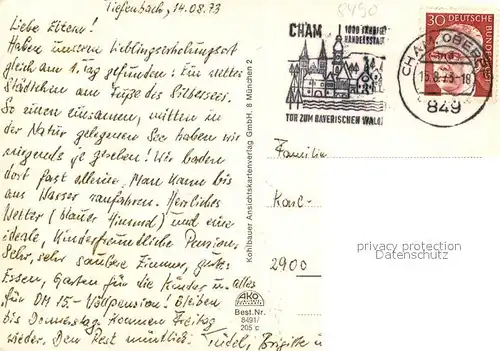 Tiefenbach, 14.08.73
Liebe Eltern!
Haben unseren Lieblingserholungsort
gleich am 1. Tag gefunden: Ein nettes
Städtchen am Fuße des Silbersees.
So einen einsamen, mitten in
der Natur gelegenen See haben wir
nirgends je gesehen! Wir baden
dort fast alleine. Man kann bis
ans Wasser ranfahren. Herrliches
Wetter (blauer Himmel) und eine
ideale, Kinderfreundliche Pension.
Sehr, sehr saubere Zimmer, gutes
Essen, Garten für die Kinder u. alles
für DM 15,- Vollpension! Bleiben
bis Donnerstag. Kommen Freitag
wieder. Den Rest mündlich. Brigitte u
Kohlbauer Ansichtskartenverlag GmbH, 8 München 2
AKO
Best.Nr.
8491/
205 c
8490
CHAM
1000 JÄHRIGE
HANDELSSTADT
TOR ZUM BAYERISCHEN WALD
CHAM, OBERPF
15.8.73-18
849
30 DEUTSCHE BUNDESPOST
Familie
Karl-
2900
privacy protection
Datenschutz